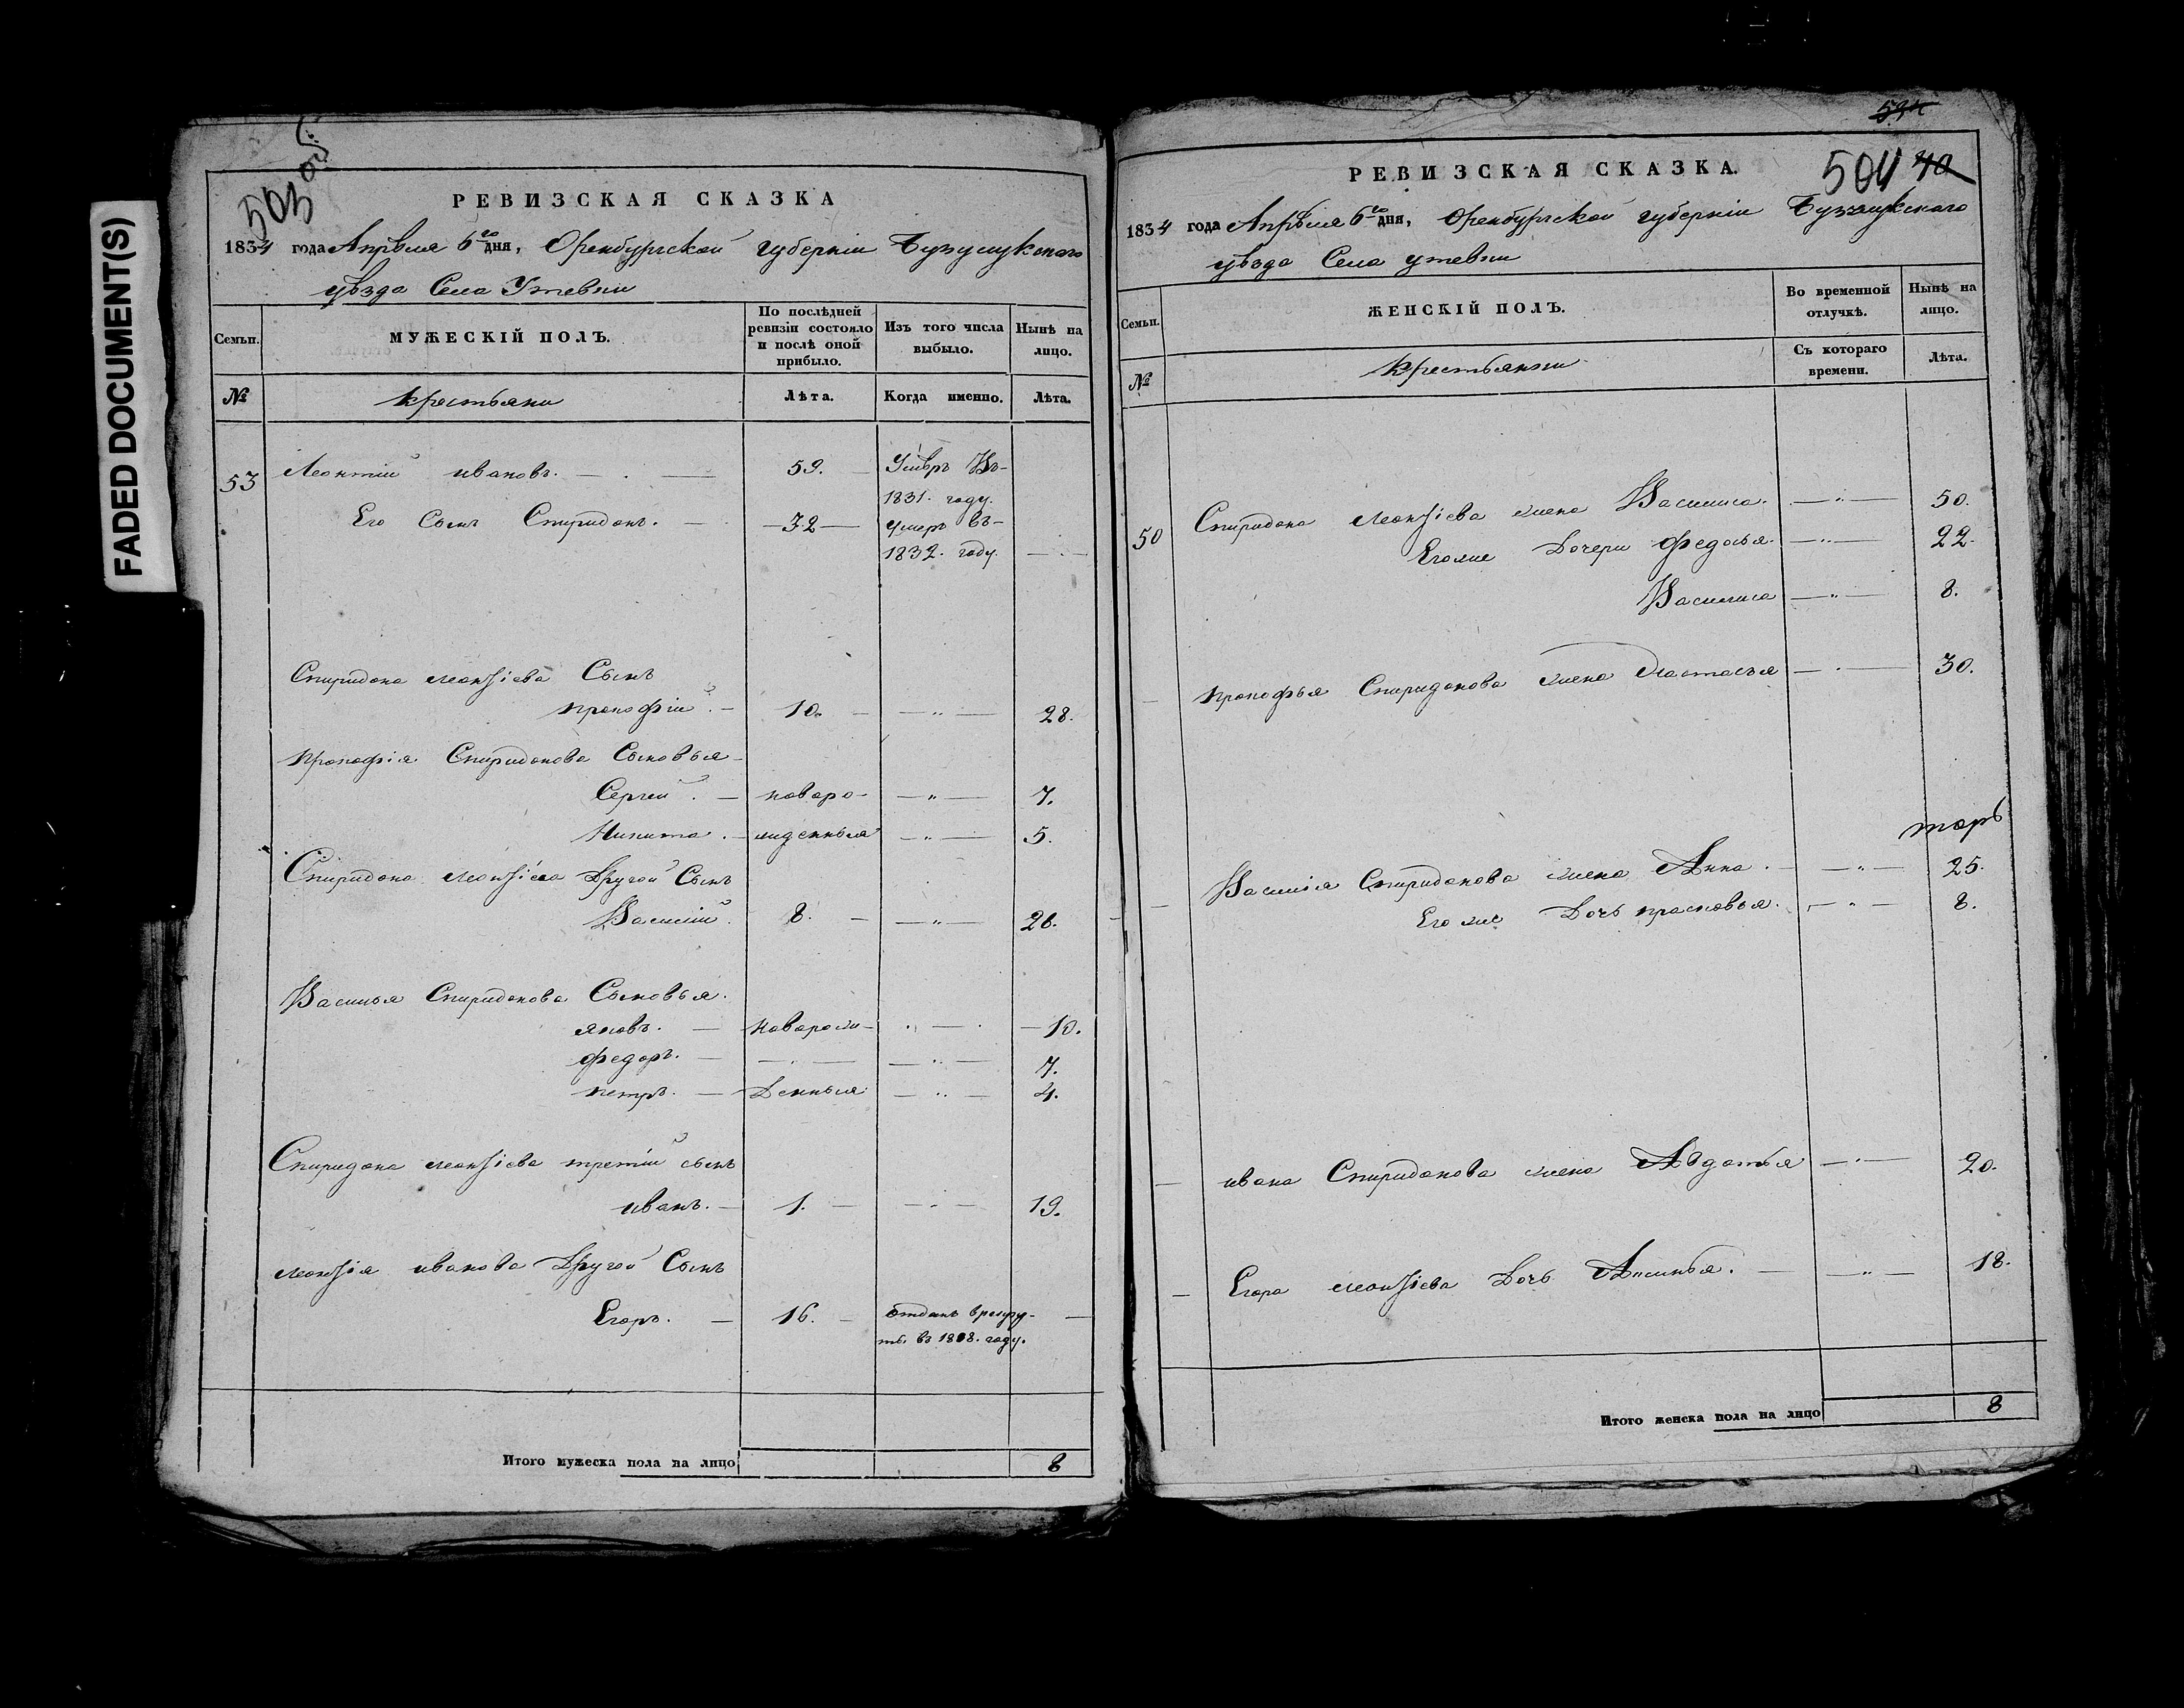 FADED DOCUMENT(S)
503 об.
РЕВИЗСКАЯ СКАЗКА
1834 года Апрѣля 6го дня, Оренбургской губерніи Бузулукскаго
уѣзда Села Утевки
Семьи.
МУЖЕСКІЙ ПОЛЪ.
По послѣдней ревизіи состояло и послѣ оной прибыло.
Изъ того числа выбыло.
Нынѣ на лицо.
№
крестьяни
Лѣта.
Когда именно.
Лѣта.
53 Леонтий ивановъ. 59. Умѣръ Въ
1831. году.
Его Сынъ Спиридонъ. 32 умеръ въ
1832. году.
Спиридона леонтіева Сынъ
прокофій. 10. 28.
прокофія Спиридонова Сыновья
Сергей. новаро- 7.
Никита. жденныя 5.
Спиридона леонтіева Другой Сынъ
Василий. 8. 26.
Василья Спиридонова Сыновья.
яковъ. новарож- 10.
федоръ. 7.
петръ. Денныя 4.
Спиридона леонтіева третий сынъ
иванъ. 1. 19.
леонтія иванова Другой Сынъ
Егоръ. 16. Отданъ врекру-
ты. въ 1808. году.
Итого мужеска пола на лицо 8
504 40
РЕВИЗСКАЯ СКАЗКА.
1834 года Апрѣля 6го дня, Оренбургской губерніи Бузулукскаго
уѣзда Села утевки
Семьи.
ЖЕНСКІЙ ПОЛЪ.
Во временной отлучкѣ.
Нынѣ на лицо.
№
крестьянки
Съ котораго времени.
Лѣта.
50 Спиридона леонтіева жена Василиса. 50.
Егоже Дочери федосья. 22.
Василиса 8.
прокофья Спиридонова жена Настасья 30.
Василія Спиридонова жена Анна. 25.
Его же Дочь прасковья. 8.
ивана Спиридонова жена Авдотья 20.
Егора леонтіева Дочь Аксинья. 18.
Итого женска пола на лицо 8